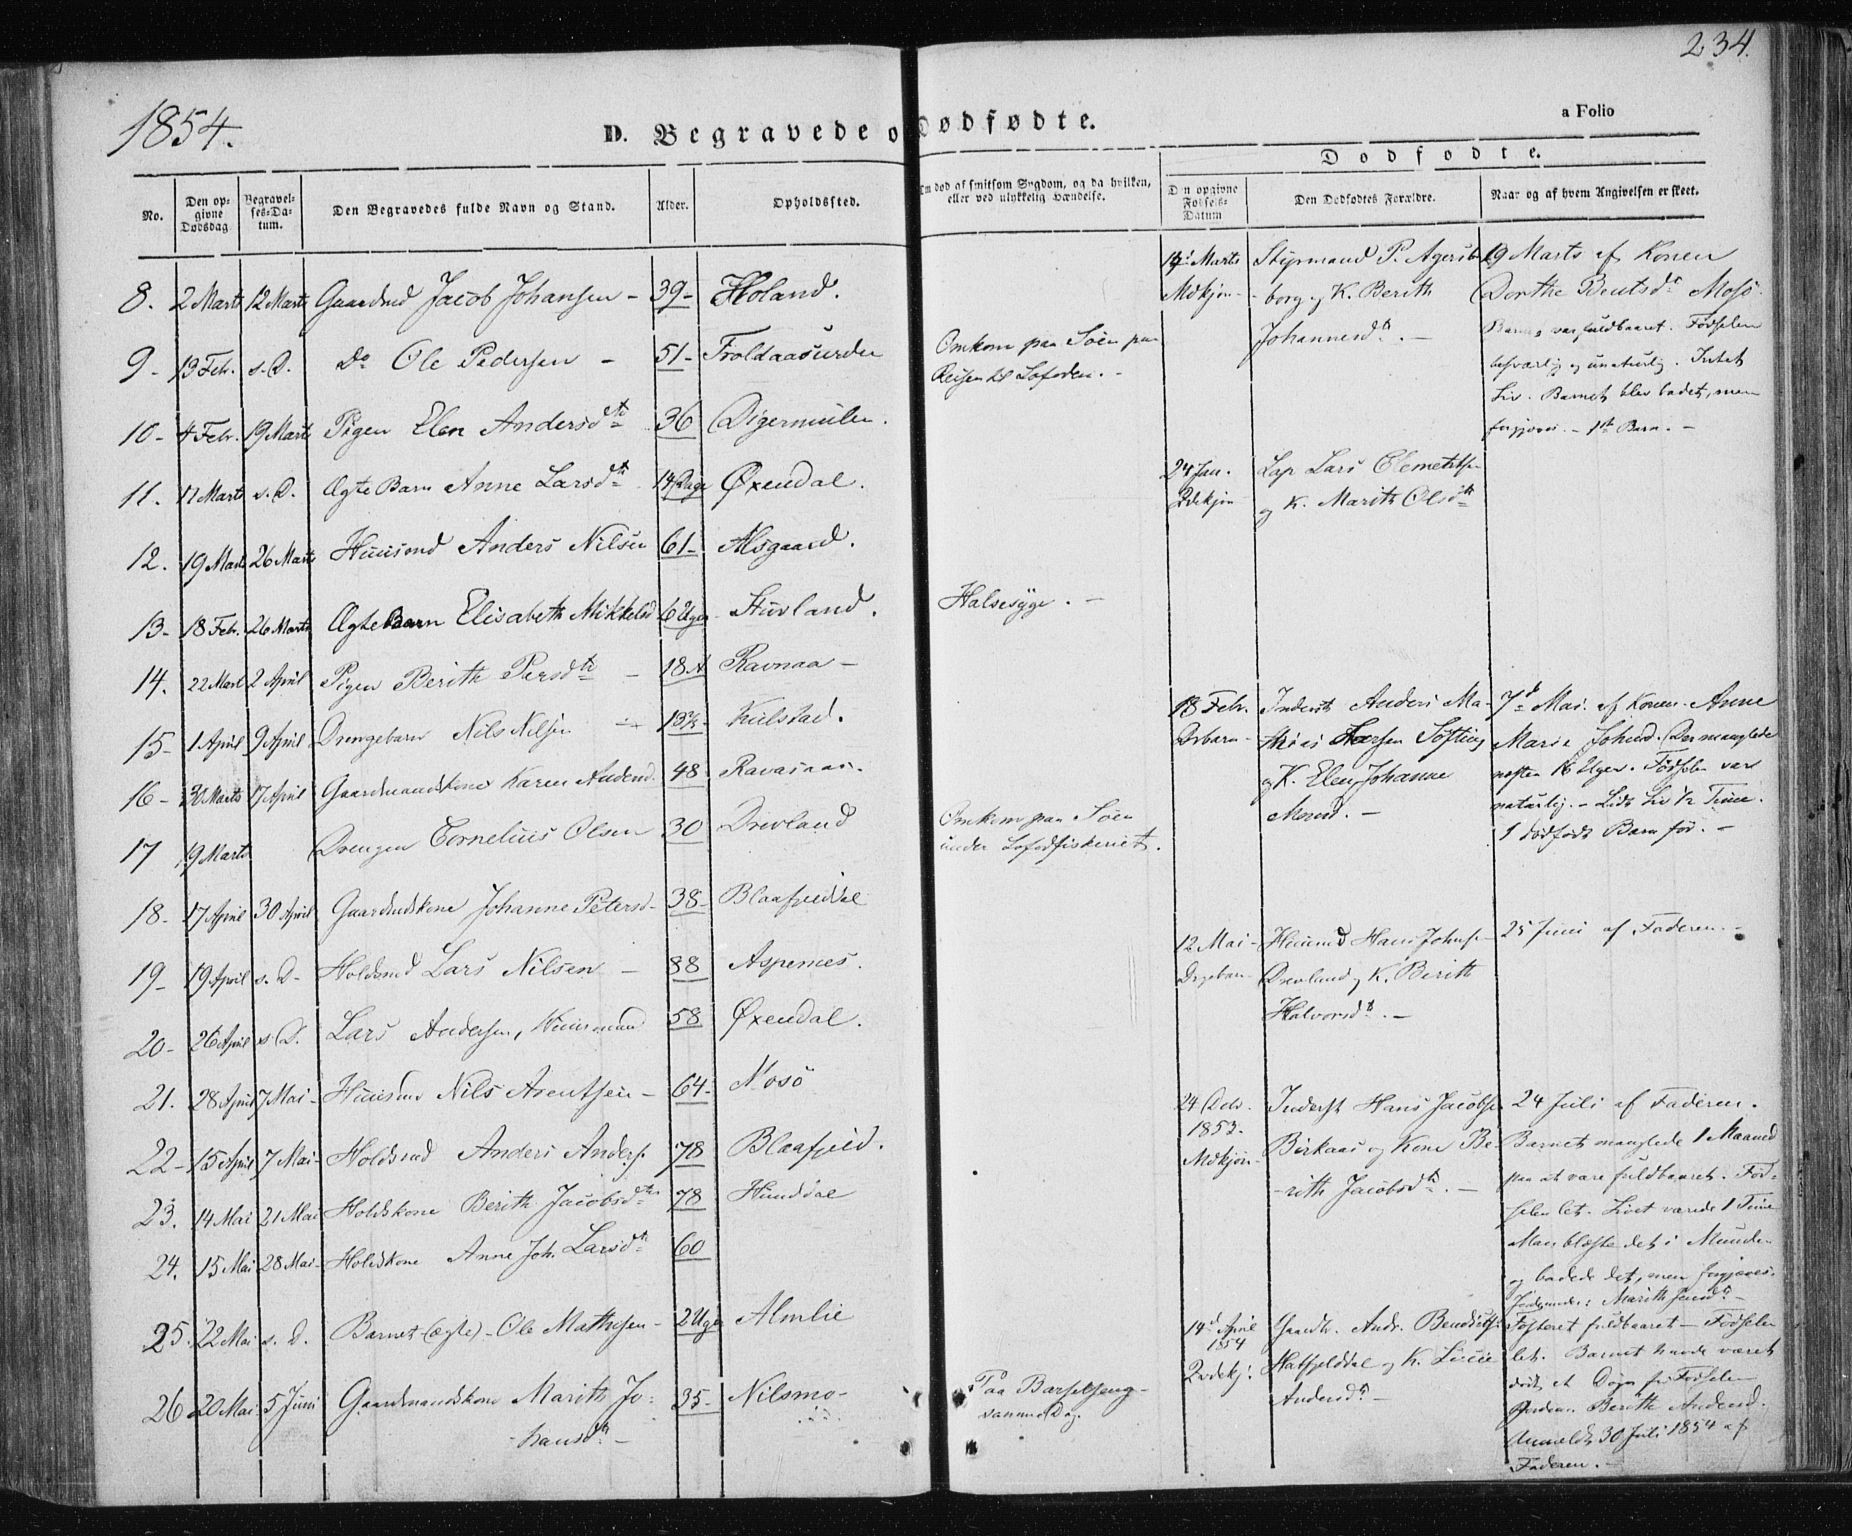 1854.
234.
D. Begravede o Dødfødte.
a Folio
No.
Den opgivne Dødsdag
Begravelses-Datum.
Den Begravedes fulde Navn og Stand.
Alder.
Opholdssted.
Om død af smitsom Sygdom, og da hvilken,
eller ved ulykkelig Hændelse.
Dødfødte.
Den opgivne Fødsels-Datum
Den Dødfødtes Forældre.
Naar og af hvem Angivelsen er skeet.
8. 2 Marts 12 Marts Gaardmd Jacob Johansen - 39- Holand.
9- 13 Feb. s. D. Do Ole Pedersen - 51- Troldaasurden
Omkom paa Søen paa
Reisen til Lofoden. -
10- 4 Febr. 19 Marts Pigen Elen Andersdtr 36 Digermulen.
11. 17 Marts s. D. Ægte Barn Anne Larsdtr 14 Dage Øxendal.
12. 19 Marts 26 Marts Huusmd Anders Nilsen 61- Alsgaard.
13- 18 Feb. 26 Marts Ægte Barn Elisabeth Mikkelsd 6 Uger Stuvland.
Halsesyge. -
14. 22 Marts 2 April Pigen Berith Persdtr - 18 A Ravnaa -
15- 1 April 9 April Drengebarn Nils Nilsen Kulstad.
16- 30 Marts 17 April Gaardmandskone Karen Andersd. 48 Ravasaas.
17 19 Marts Drengen Cornelius Olsen 30 Drevland
Omkom paa Søen
under Lofodfiskeriet.
18- 17 April 30 April Gaardmdskone Johanne Petersd- 38- Blaafjeldal
19- 19 April s. D- Holdsmd Lars Nilsen - 88 Aspenes.
20- 26 April s. D. Lars Andersen, Huusmand 58 Øxendal.
21. 28 April 7 Mai- Huusmd Nils Arentsen - 64- Mosø
22- 15 April 7 Mai- Holdsmd Anders Anders. 78 Blaafjeld.
23. 14 Mai 21 Mai Holdskone Berith Jacobsdtr 78 Hunddal
24. 15 Mai 28 Mai- Holdskone Anne Joh. Larsdtr 60
25. 22 Mai s. D. Barnet (ægte) - Ole Mathisen - 2 Uger Almlie
26 20 Mai 5 Juni Gaardmandskone Marith Jo-
hansdtr - 35- Nilsmo-
Paa Barselseng-
samme Dag.
Marts
Mdkjøn-
Styrmand P. Agers-
borg og K. Berith
Johannesdtr. -
19 Marts af Konen
Dorthe Bentsdtr Mosø-
Barnet var fuldbaaret. Fødselen
besværlig og unaturlig. Intet
Liv. Barnet blev badet, men
forgjæves. - 1ste Barn. -
24 Jan.
Qdekjøn
Lap Lars Clemetsen
og K. Marith Olsdtr
18 Febr.
Drbarn-
Inderst Anders Ma-
thias Søfting
og K. Elen Johanne
Monsd. -
7de Mai. af Konen Anne
Marie Johnsd. Der manglede
næsten 16 Uger. Fødselen var
naturlig. - Lidt Liv 1/2 Time.
1 dødfødt Barn før. -
12 Mai-
Drgebarn-
Huusmd Hans Johns-
Drevland og K. Berith
Halvorsdtr. -
25 Juni af Faderen. -
24
1853-
Mdkjøn-
Inderst Hans Jacobsen
Birkaas og Kone Be-
rith Jacobsdtr. -
24 Juli af Faderen.
Barnet manglede 1 Maaned
paa at være fuldbaaret. Fød-
selen let. Livet varede 1 Time
Man blæste det i Munden
og badede det, men forgjæves.
Marith
14de April
1854
Qvdekj:
Gaardb. Andr. Bendictsen
Hatfjelddal og K. Lucie
Andersdtr -
Fosteret fuldbaaret - Fødselen
let. Barnet havde været
dødt et Døgn før Fødselen
Berith Andersd.
Anmeldt 30 Juli 1854 af
Faderen. -